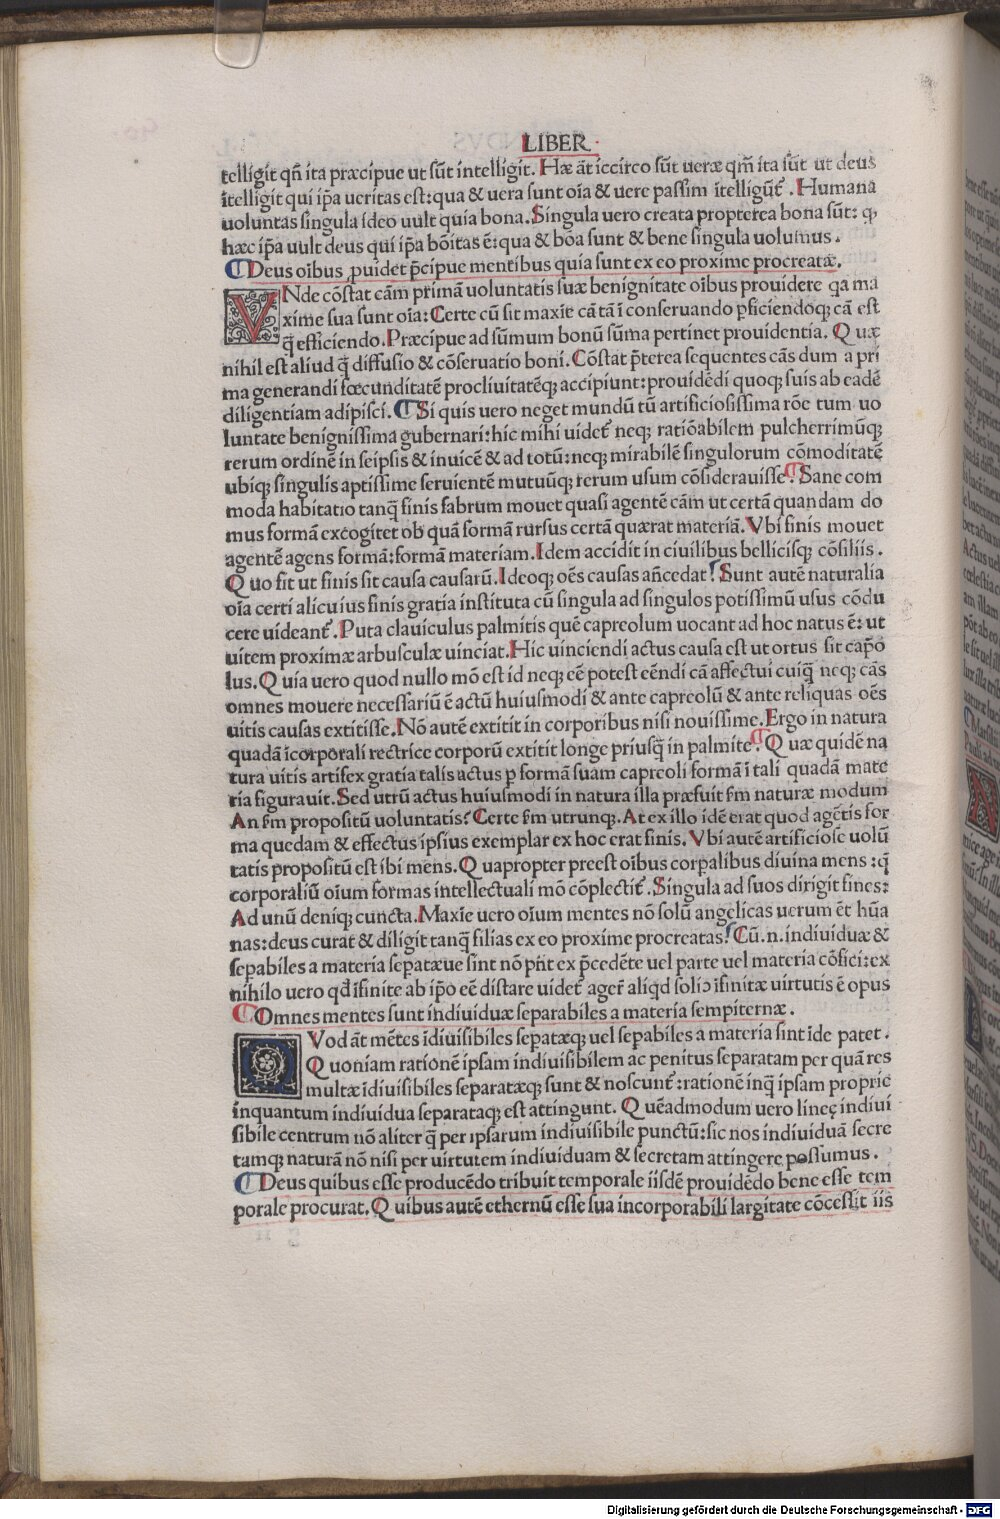 LIBER
telligit qñ ita præcipue ut sūt intelligit. Hæ āt iccirco sūt ueræ qm̄ ita sūt ut deus
ītelligit qui ip̄a ueritas est: qua & uera sunt oīa & uere passim ītelligūt᷒. Humana
uoluntas singula ideo uult quia bona. Singula uero creata propterea bona sūt: qꝫ
hæc ip̄a uult deus qui ip̄a bōitas ē: qua & bōa sunt & bene singula uolumus.
¶ Deus oībus ꝓuidet p̄cipue mentibus quia sunt ex eo proxime procreatæ.
VNde cōstat cām primā uoluntatis suæ benignitate oībus prouidere qa ma
xime sua sunt oīa: Certe cū sit maxīe cā tā ī conseruando ꝑficiendoqꝫ cā est
q̄ efficiendo. Præcipue ad sūmum bonū sūma pertinet prouidentia. Quæ
nihil est aliud q̄ diffusio & cōseruatio boni. Cōstat p̄terea sequentes cās dum a pri
ma generandi fœcunditatē procliuitatēqꝫ accipiunt: prouidēdi quoqꝫ suis ab eadē
diligentiam adipisci. ¶ Si quis uero neget mundū tū artificiosissima rōe tum uo
luntate benignissima gubernari: hic mihi uidet᷒ neqꝫ ratiōabilem pulcherrimūqꝫ
rerum ordinē in seipsis & inuicē & ad totū: neqꝫ mirabilē singulorum cōmoditatē
ubiqꝫ singulis aptissime seruientē mutuūqꝫ rerum usum cōsiderauisse. ¶ Sane com
moda habitatio tanq̄ finis fabrum mouet quasi agentē cām ut certā quandam do
mus formā excogitet ob quā formā rursus certā quærat materiā. Vbi finis mouet
agentē agens formā: formā materiam. Idem accidit in ciuilibus bellicisqꝫ cōsiliis.
Quo fit ut finis sit causa causarū. Ideoqꝫ oēs causas añcedat. ¶ Sunt autē naturalia
oīa certi alicuius finis gratia instituta cū singula ad singulos potissimū usus cōdu
cere uideant᷒. Puta clauiculus palmitis quē capreolum uocant ad hoc natus ē: ut
uitem proximæ arbusculæ uinciat. Hic uinciendi actus causa est ut ortus sit cap̄o
lus. Quia uero quod nullo mō est id neqꝫ eē potest eēndi cā affectui cuiq̄ neqꝫ cās
omnes mouere necessariū ē actū huiusmodi & ante capreolū & ante reliquas oēs
uitis causas extitisse. Nō autē extitit in corporibus nisi nouissime. Ergo in natura
quadā īcorporali rectrice corporū extitit longe priusq̄ in palmite. ¶ Quæ quidē na
tura uitis artifex gratia talis actus ꝑ formā suam capreoli formā ī tali quadā mate
ria figurauit. Sed utrū actus huiusmodi in natura illa præfuit ẜm naturæ modum
An ẜm propositū uoluntatis? Certe ẜm utrunqꝫ. At ex illo idē erat quod agētis for
ma quedam & effectus ipsius exemplar ex hoc erat finis. Vbi autē artificiose uolū
tatis propositū est ibi mens. Quapropter preest oībus corꝑalibus diuina mens: q̄
corporaliū oīum formas intellectuali mō cōplectit᷒. Singula ad suos dirigit fines:
Ad unū deniqꝫ cuncta. Maxīe uero oīum mentes nō solū angelicas uerum ēt hūa
nas: deus curat & diligit tanq̄ filias ex eo proxime procreatas. ¶ Cū.n. indiuiduæ &
seꝑabiles a materia seꝑatæue sint nō pñt ex p̄cedēte uel parte uel materia cōfici: ex
nihilo uero qđ īfinite ab ip̄o eē distare uidet᷒ ager᷒ aliqd soliꝰ īfinitæ uirtutis ē opus
¶ Omnes mentes sunt indiuiduæ separabiles a materia sempiternæ.
QVod āt mētes īdiuisibiles seꝑatæqꝫ uel seꝑabiles a materia sint īde patet.
Quoniam rationē ipsam indiuisibilem ac penitus separatam per quā res
multæ īdiuisibiles separatæqꝫ sunt & noscunt᷒: rationē inq̄ ipsam proprie
inquantum indiuidua separataqꝫ est attingunt. Quēadmodum uero lineę indiui
sibile centrum nō aliter q̄ per ipsarum indiuisibile punctū: sic nos indiuiduā secre
tamqꝫ naturā nō nisi per uirtutem indiuiduam & secretam attingere possumus.
¶ Deus quibus esse producēdo tribuit temporale iisdē prouidēdo bene esse tem
porale procurat. Quibus autē ethernū esse sua incorporabili largitate cōcessit iis
Digitalisierung gefördert durch die Deutsche Forschungsgemeinschaft - DFG